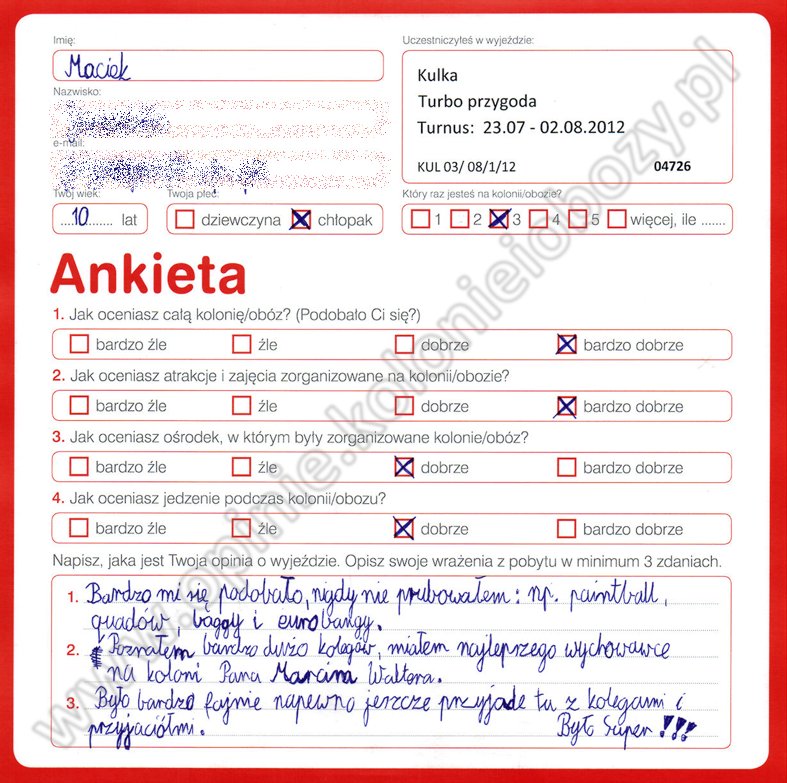 Imię:
Maciek
Nazwisko:
e-mail:
Twój wiek:
10 lat
Twoja płeć:
dziewczyna chłopak
Uczestniczyłeś w wyjeździe:
Kulka
Turbo przygoda
Turnus: 23.07 - 02.08.2012
KUL 03/ 08/1/12 04726
Który raz jesteś na kolonii/obozie?
1 2 3 4 5 więcej, ile .......
Ankieta
1. Jak oceniasz całą kolonię/obóz? (Podobało Ci się?)
bardzo źle źle dobrze bardzo dobrze
2. Jak oceniasz atrakcje i zajęcia zorganizowane na kolonii/obozie?
bardzo źle źle dobrze bardzo dobrze
3. Jak oceniasz ośrodek, w którym były zorganizowane kolonie/obóz?
bardzo źle źle dobrze bardzo dobrze
4. Jak oceniasz jedzenie podczas kolonii/obozu?
bardzo źle źle dobrze bardzo dobrze
Napisz, jaka jest Twoja opinia o wyjeździe. Opisz swoje wrażenia z pobytu w minimum 3 zdaniach.
1. Bardzo mi się podobało, nigdy nie prubowałem: np. paintball,
quadów, baggy i eurobangy.
2. Poznałem bardzo dużo kolegów, miałem najlepszego wychowawce
na koloni Pana Marcina Waltera.
3. Było bardzo fajnie napewno jeszcze przyjade tu z kolegami i
przyjaciółmi. Było Super !!!
www.opinie.kolonieiobozy.pl